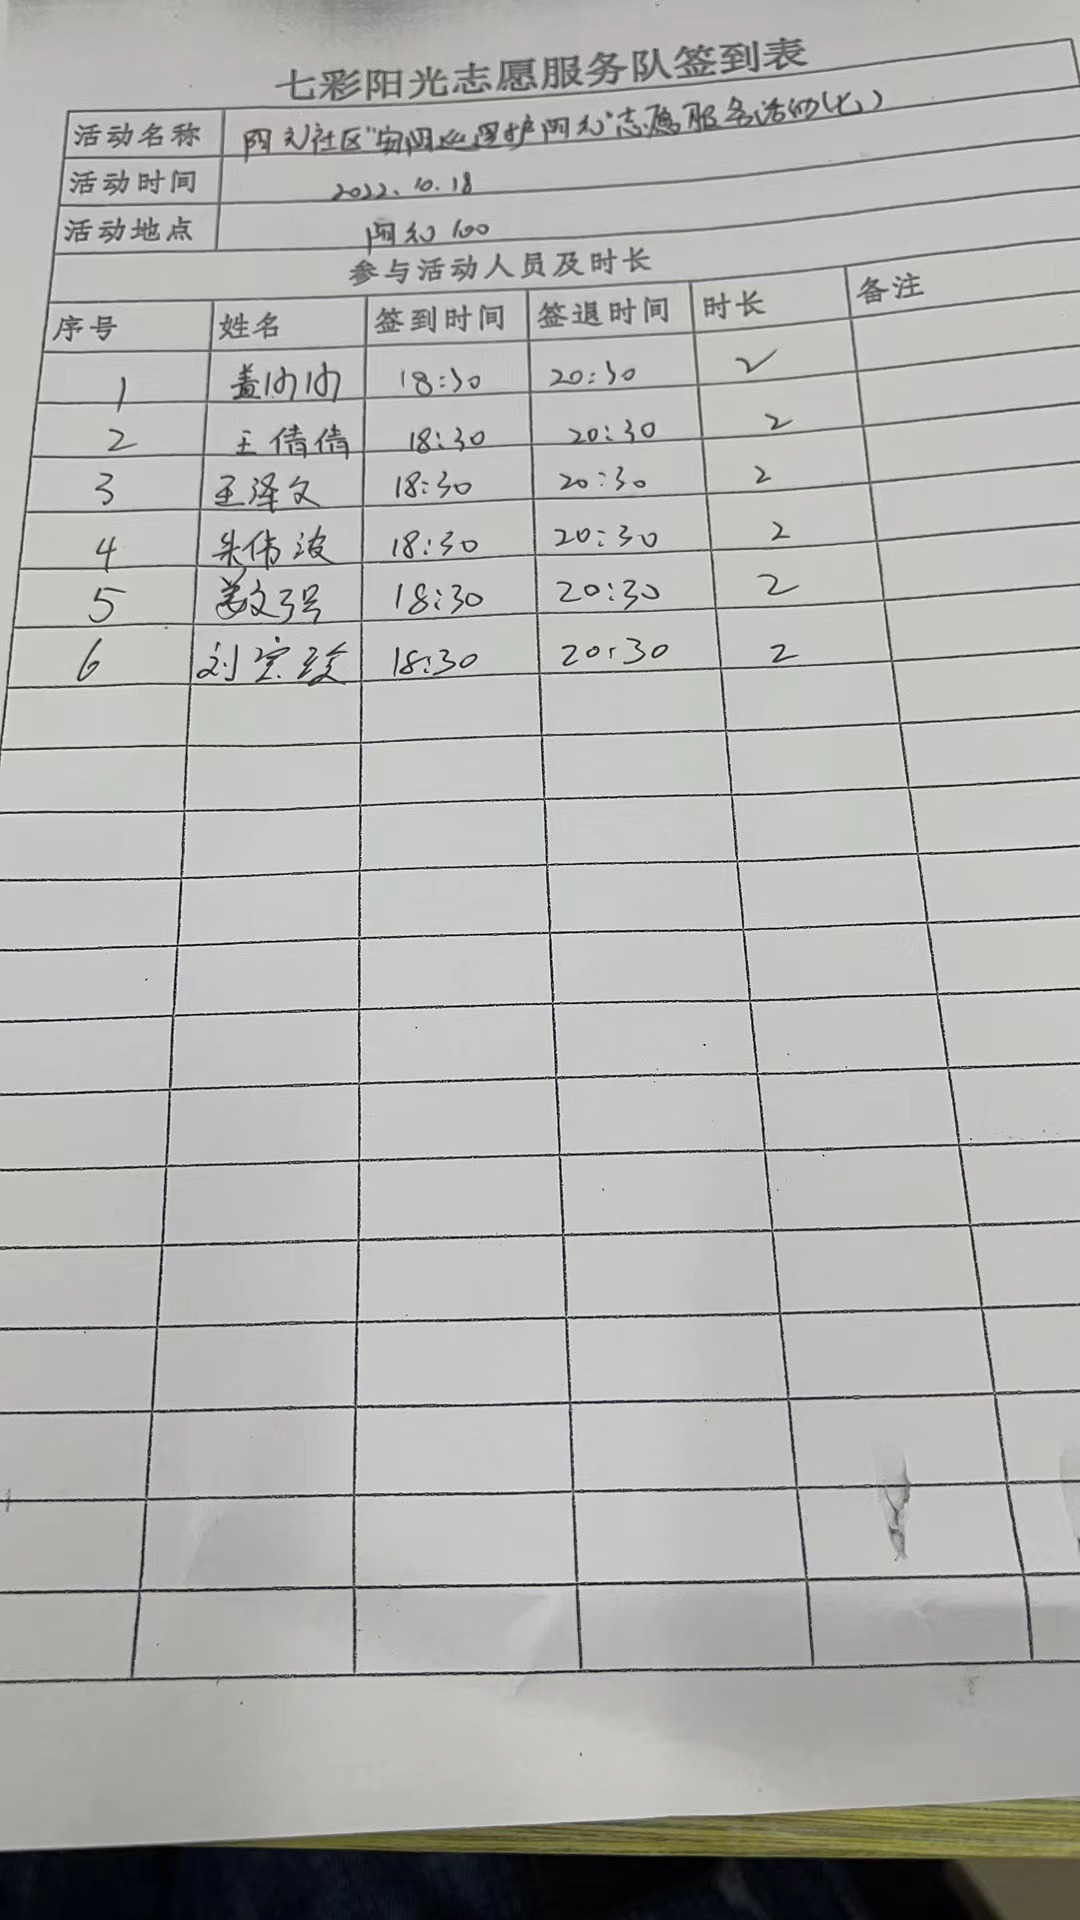 七彩阳光志愿服务队签到表
活动名称 阳光社区"安阳巡逻护阳光"志愿服务活动(七)
活动时间 2022.10.18
活动地点 阳光100
参与活动人员及时长
序号 姓名 签到时间 签退时间 时长 备注
1 盖 18:30 20:30 2
2 王倩倩 18:30 20:30 2
3 王泽文 18:30 20:30 2
4 朱伟波 18:30 20:30 2
5 姜文强 18:30 20:30 2
6 刘 18:30 20:30 2